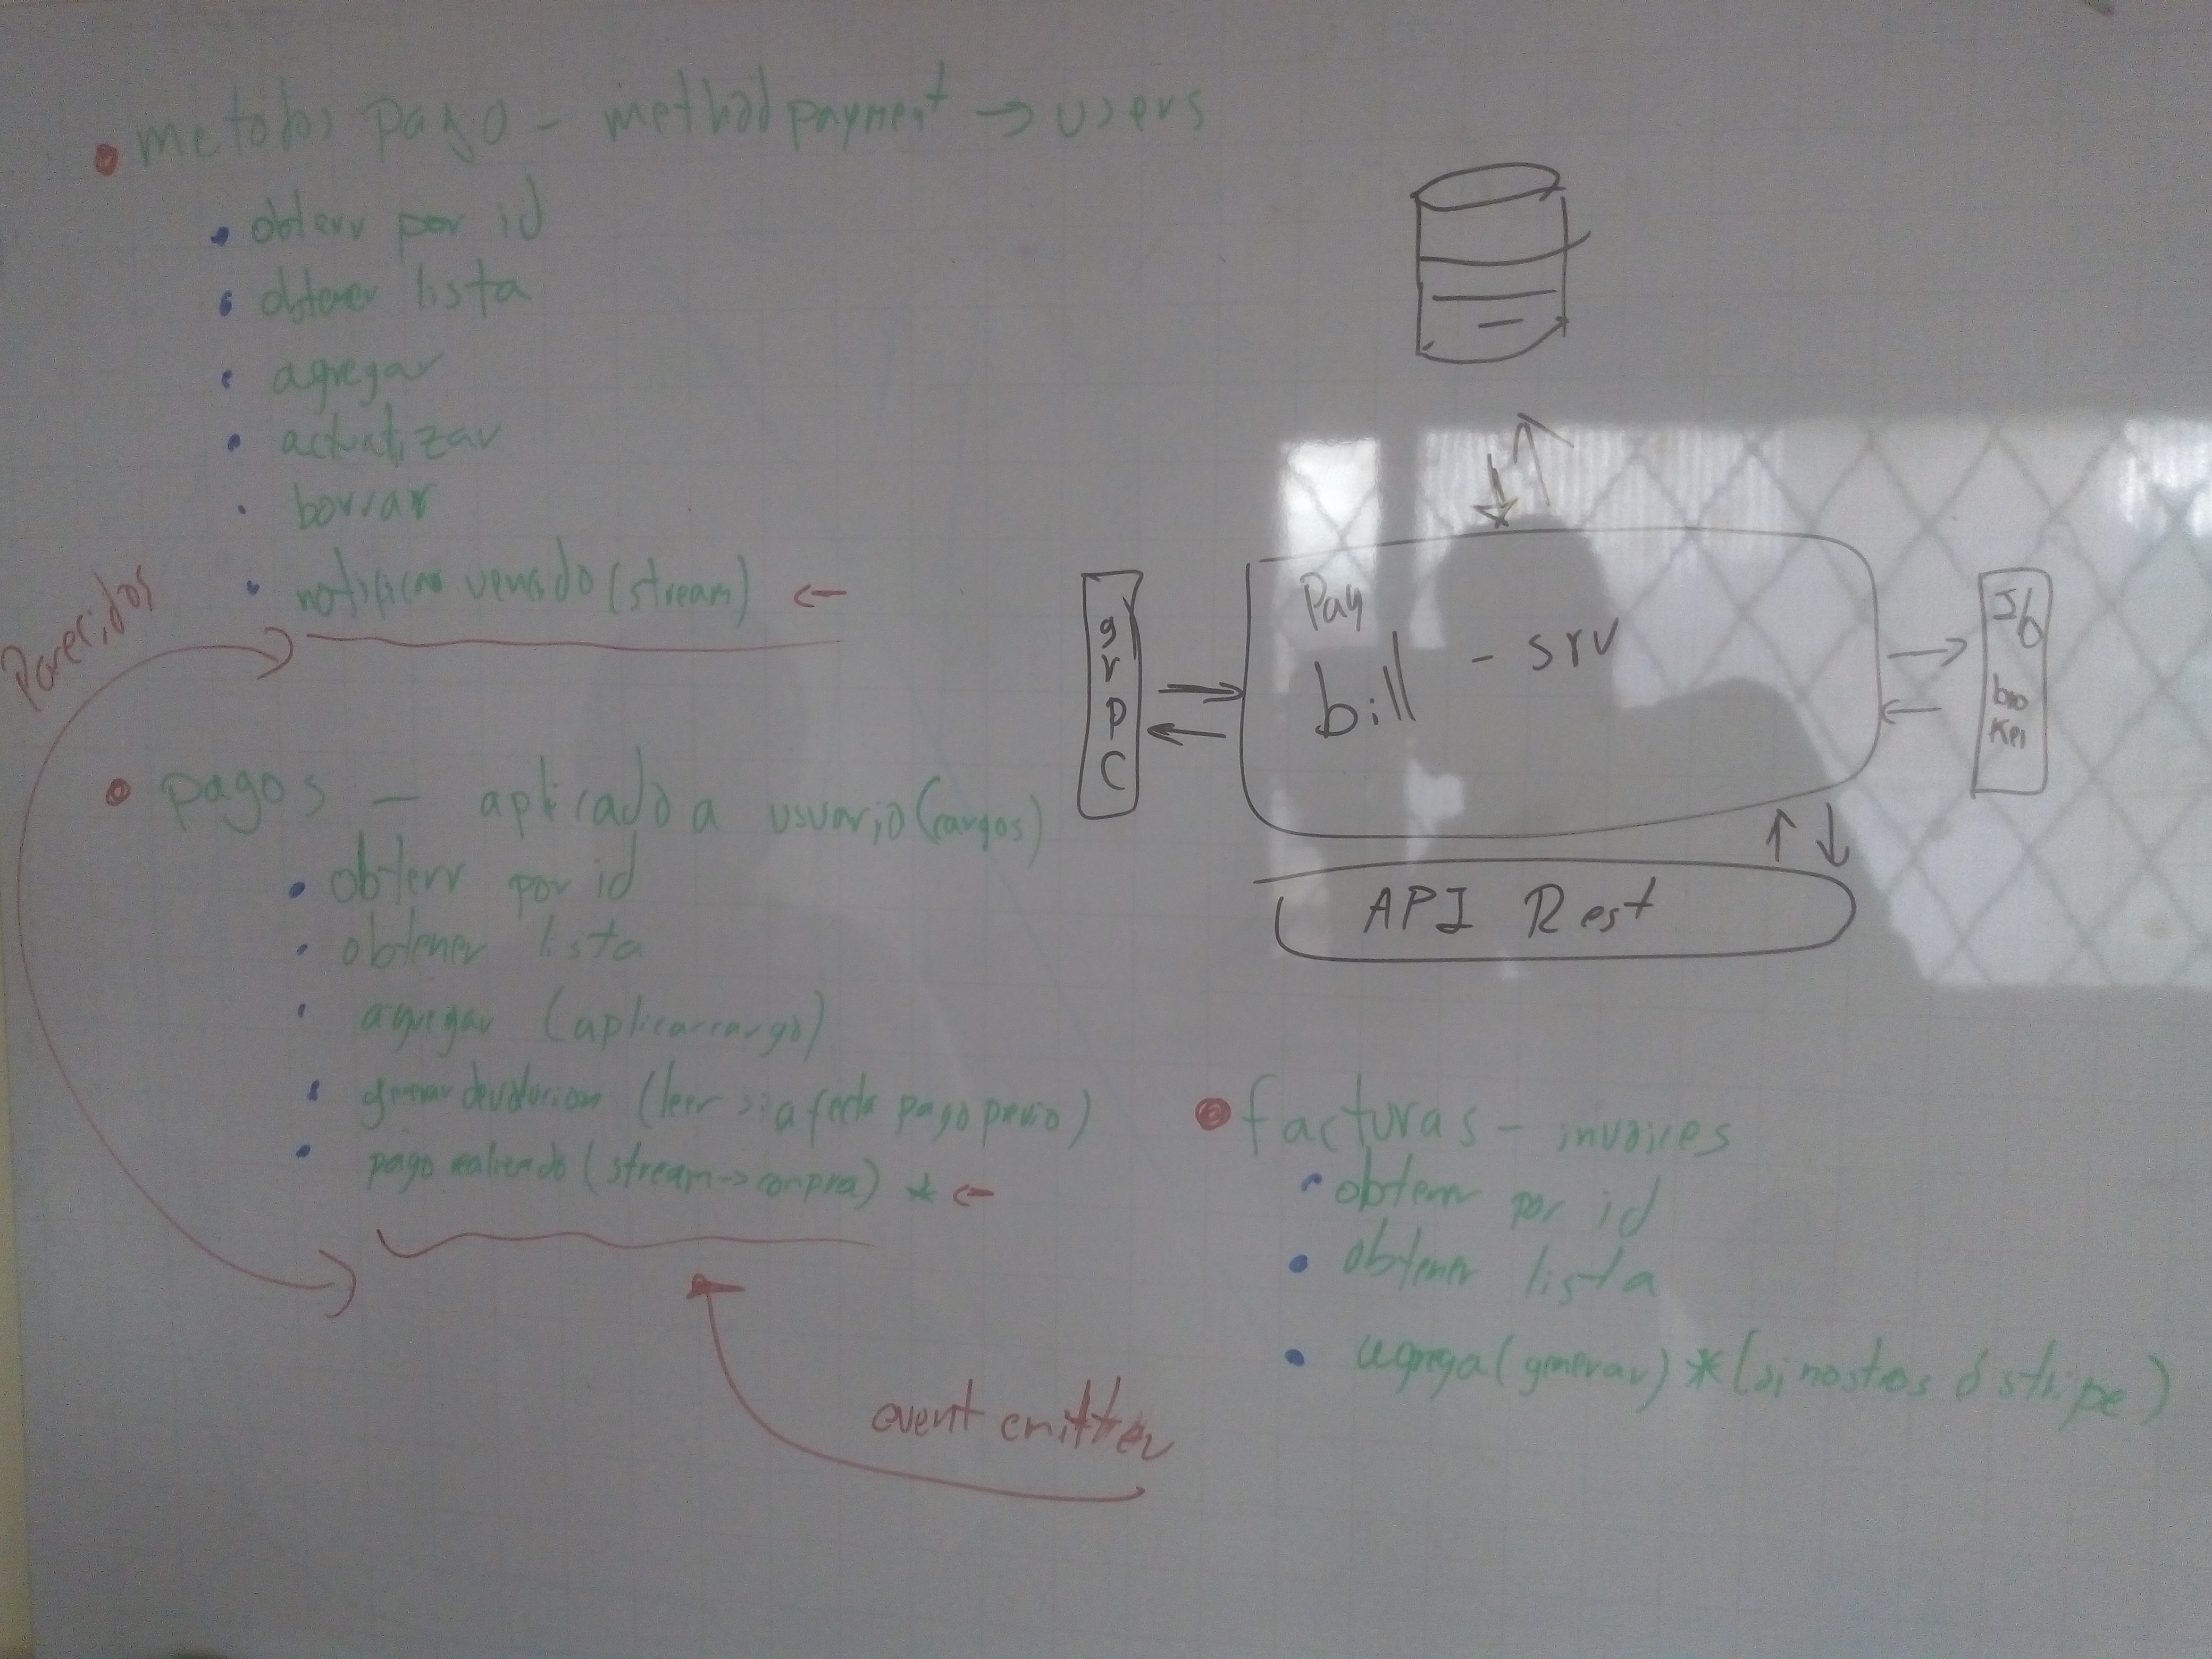 metodos pago - method payment → users
obtenr por id
obtener lista
agregar
actualizar
borrar
notificar vencido (stream) ←
Parecidos
pagos - aplicado a usuario (cargos)
obtenr por id
obtener lista
agregar (aplicar cargo)
generar devolucion (leer si afecta pago previo)
pago realizado (stream -> compra) * ←
event emitter
grpc
Pay
bill - srv
API Rest
facturas - invoices
obtenr por id
obtener lista
agrega (generar) * (si nostros ó stripe)